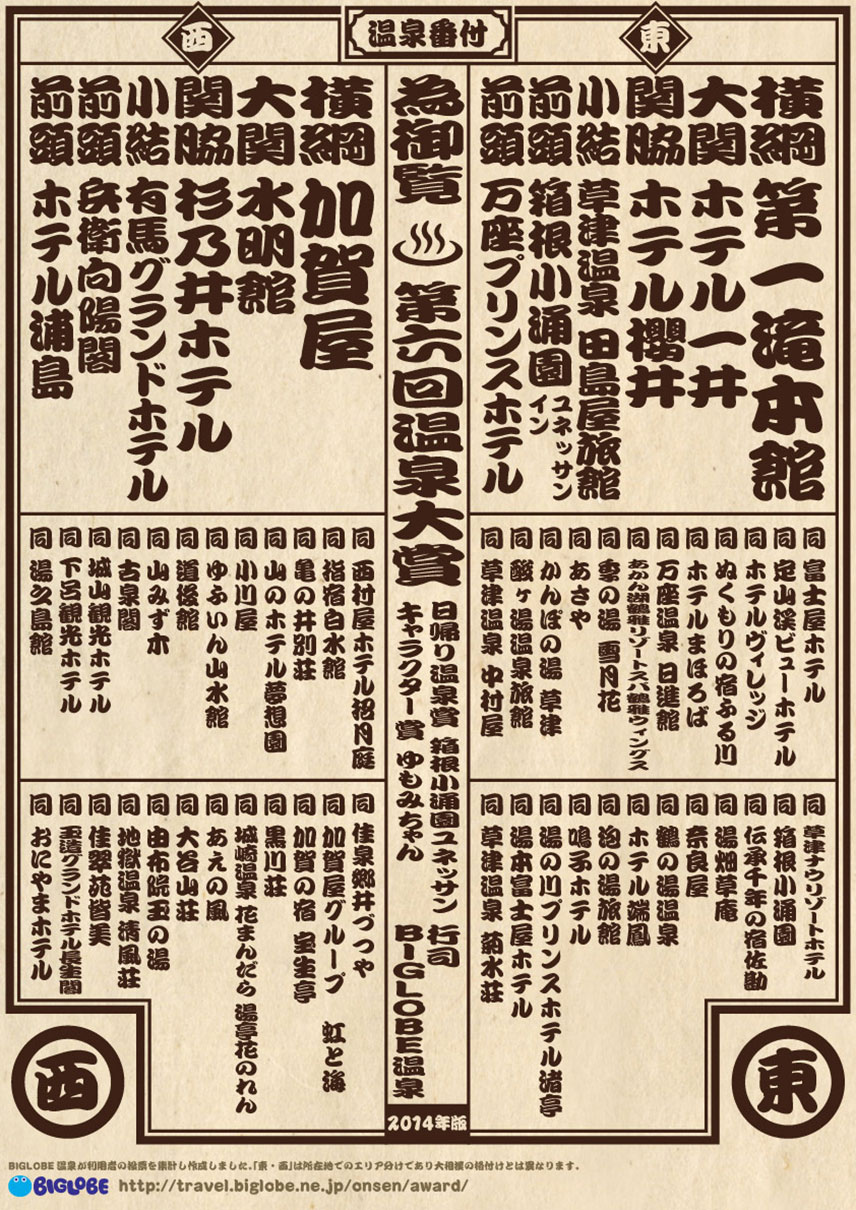 温泉番付
東
西
横綱 第一滝本館
大関 ホテル一井
関脇 ホテル櫻井
小結 草津温泉 田島屋旅館
前頭 箱根小涌園 ユネッサンイン
前頭 万座プリンスホテル
同 富士屋ホテル
同 定山渓ビューホテル
同 ホテルヴィレッジ
同 ぬくもりの宿ふる川
同 ホテルまほろば
同 万座温泉 日進館
同 あかん湖鶴雅リゾートスパ鶴雅ウィングス
同 雪の湯 雪月花
同 あさや
同 かんぽの湯 草津
同 酸ヶ湯温泉旅館
同 草津温泉 中村屋
同 草津ナウリゾートホテル
同 箱根小涌園
同 伝承千年の宿佐勘
同 湯畑草庵
同 奈良屋
同 鶴の湯温泉
同 ホテル瑞鳳
同 泡の湯旅館
同 鳴子ホテル
同 湯の川プリンスホテル渚亭
同 湯本富士屋ホテル
同 草津温泉 菊水荘
東
為御覧 ♨ 第六回温泉大賞
日帰り温泉賞 箱根小涌園ユネッサン
キャラクター賞 ゆもみちゃん
行司
BIGLOBE温泉
2014年版
横綱 加賀屋
大関 水明館
関脇 杉乃井ホテル
小結 有馬グランドホテル
前頭 兵衛向陽閣
前頭 ホテル浦島
同 西村屋ホテル招月庭
同 指宿白水館
同 亀の井別荘
同 山のホテル夢想園
同 小川屋
同 ゆふいん山水館
同 道後館
同 山みず木
同 古泉閣
同 城山観光ホテル
同 下呂観光ホテル
同 湯之島館
同 佳泉郷井づつや
同 加賀屋グループ 虹と海
同 加賀の宿 宝生亭
同 黒川荘
同 城崎温泉 花まんだら 湯亭花のれん
同 あえの風
同 大谷山荘
同 由布院玉の湯
同 地獄温泉 清風荘
同 佳翠苑皆美
同 玉造グランドホテル長生閣
同 おにやまホテル
西
BIGLOBE温泉が利用者の投票を集計し作成しました。「東・西」は所在地でのエリア分けであり大相撲の格付けとは異なります。
BIGLOBE http://travel.biglobe.ne.jp/onsen/award/